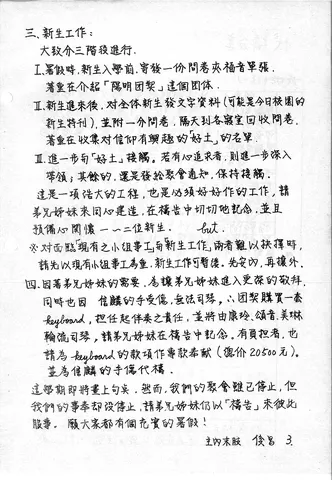 三、新生工作:
大致分三階段進行.
I.暑假時,新生入學前,寄發一份問卷夾福音單張.
著重在介紹「陽明团契」這個团体.
II.新生進來後,对全体新生發文字資料(可能是今日校園的
新生特刊),並附一份問卷.隔天到各寢室回收問卷.
著重在收集对信仰有興趣的「好土」的名單.
III.進一步向「好土」接觸,若有心追求者,則進一步深入
帶領;其餘的,還是發給聚會通知,保持接觸.
這是一項浩大的工程,也是必須好好作的工作,請
弟兄姊妹來同心建造,在禱告中切切地記念,並且
預備心関懷一~二位新生. but.
※对面臨現有之小組事工与新生工作,兩者难以抉擇時,
請先以現有小組事工為重,新生工作可暫後.先安內,再攘外.
四、因著弟兄姊妹的需要,為讓弟兄姊妹進入更深的敬拜,
同時也因 信麟的手受傷,無法司琴,∴团契購買一套
keyboard,担任起伴奏之責任,並將由康玲、頌音、美琳
輪流司琴,請弟兄姊妹在禱告中記念.有負担者,也
請為keyboard的款項作專款奉献(總价20500元).
並為信麟的手傷代禱.
這學期即將畫上句矣.然而,我們的聚會雖已停止,但
我們的事奉却沒停止,請弟兄姊妹仍以「禱告」來彼此
服事. 願大家都有個充實的暑假!
主內末肢 俊昌 3.